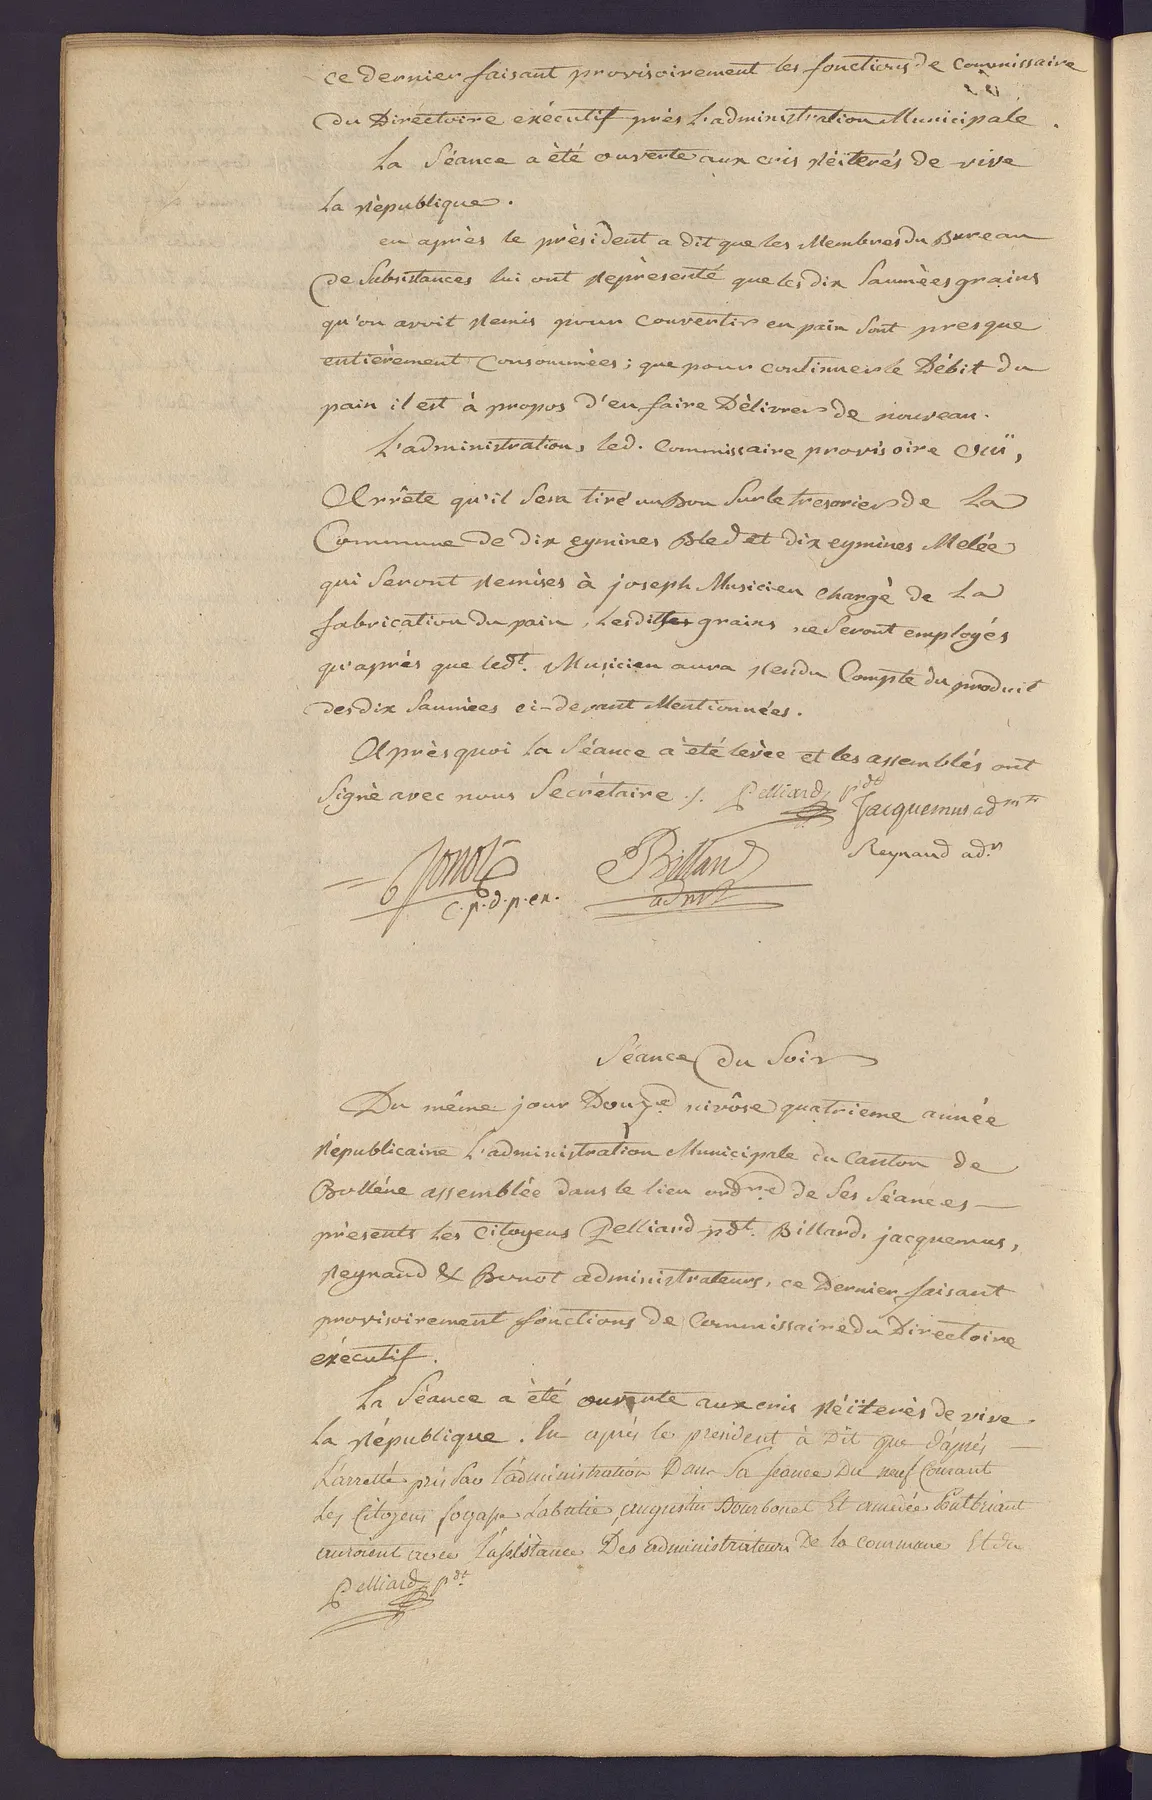 ce dernier faisant provisoirement les fonctions de commissaire
du Diréctoire exécutif près L'administration Municipale.
La Séance a été ouverte aux cris réiterés de vive
La république.
en après le président a dit que les Membres du Bureau
de Subsistances lui ont représenté que les dix Saumèes grains
qu'on avoit remis pour convertir en pain sont presque
entièrement consommèes; que pour continuer le Débit du
pain il est à propos d'en faire Délivrer de nouveau.
L'administration, led. Commissaire provisoire oüi,
Arrête qu'il Sera tiré un Bon Sur le tresorier de La
Commune de dix eymines Bled et dix eymines Melée
qui Seront remises à joseph Musicien chargé de La
fabrication du pain, Lesdittes grains ne Seront employés
qu'après que ledt. Musicien aura rendu Compte du produit
des dix Saumèes ci-devant Mentionnées.
Après quoi La Séance a été levée et les assemblés ont
Signé avec nous Secrétaire ./. Pelliard pdt
Jacquemus adm
Reynaud adr
Bonot Billard
c.p.d.p.ex. admr
Séance du Soir
Du même jour Douze nivôse quatrieme année
républicaine L'administration Municipale du Canton de
Bolléne assemblée dans le lieu ordre de Ses Séances
présents les Citoyens Pelliard pdt. Billard, jacquemus,
Reynaud & Bonot administrateurs, ce Dernier faisant
provisoirement fonctions de Commissaire du Directoire
exécutif.
La Séance a été ouverte aux cris réiterés de vive
La république. En après le president à Dit que d'après
L'arretté pris par l'administration Dans Sa séance Du neuf Courant
Les Citoyens Labatie, augustin Bourbouet Et
auroient avec l'assistance Des administrateurs De la commune Et du
Pelliard pdt